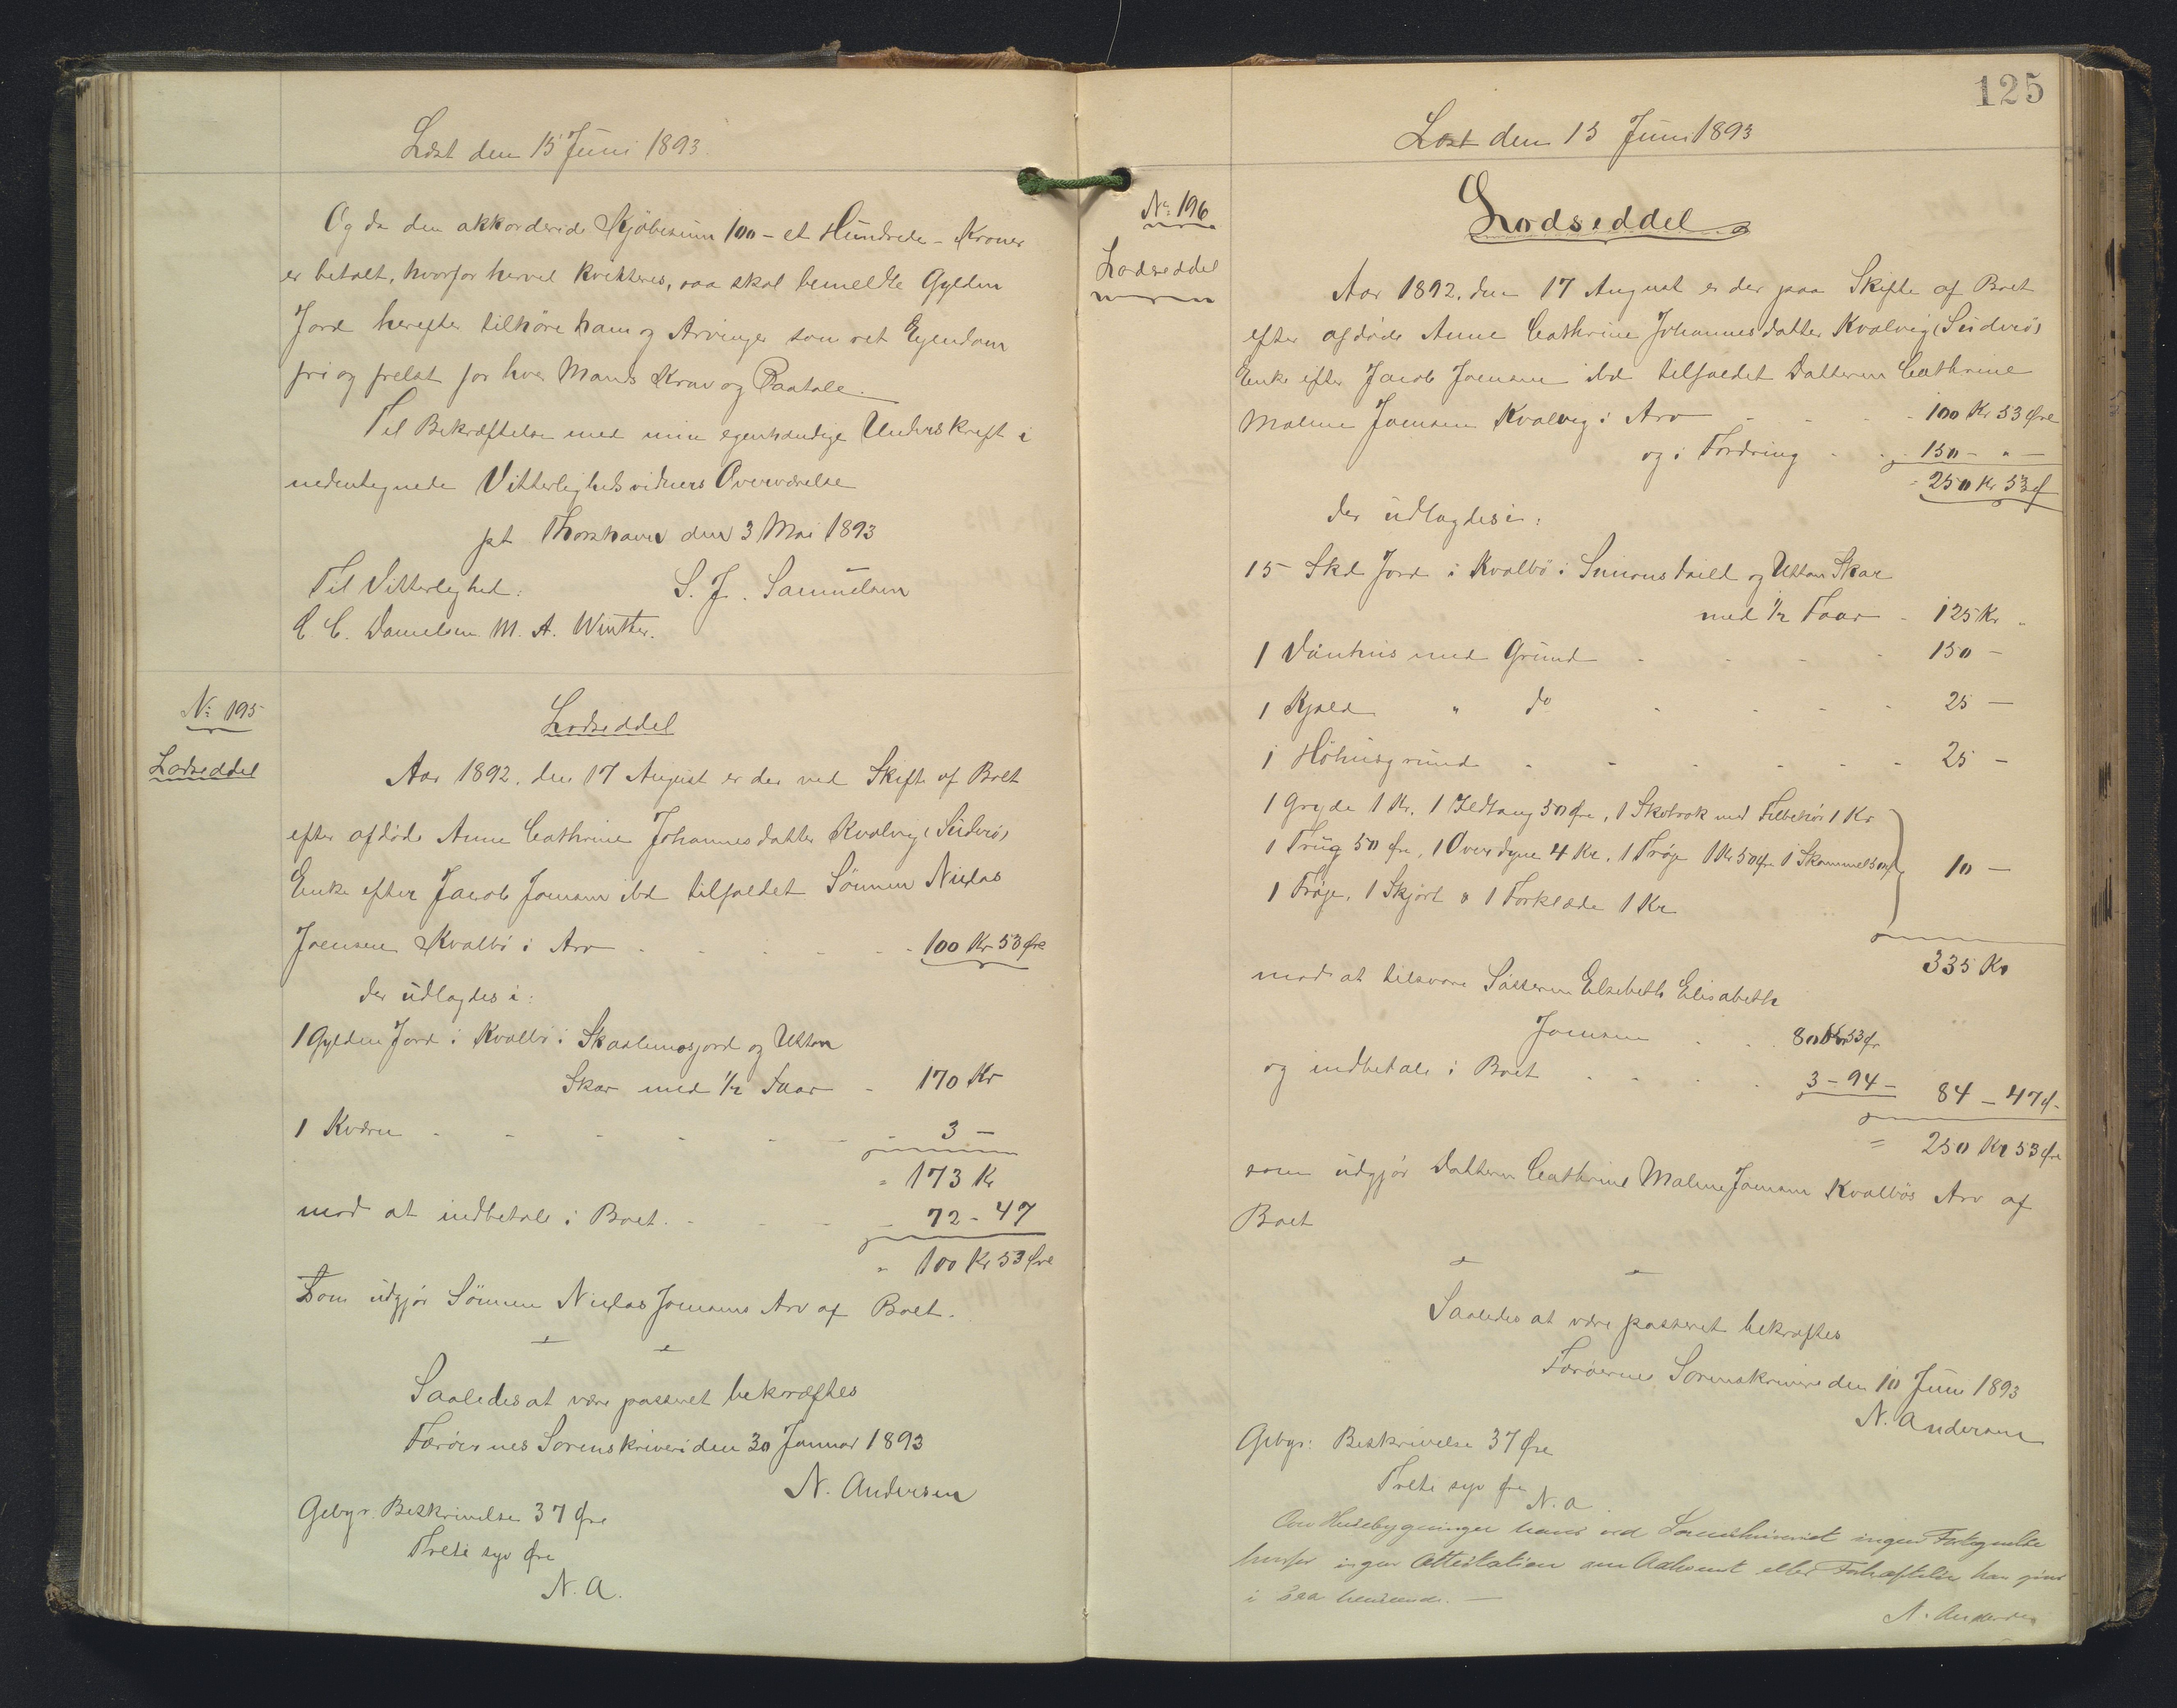 Læst den 15 Juni 1893.
Og da den akkorderede Kjöbesum 100 - et Hundrede - Kroner
er betalt, hvorfor herved kvitteres, saa skal bemeldte Gylden
Jord herefter tilhöre ham og Arvinger som ret Ejendom
fri og frelst for hver Mands Krav og Paatale.
Til Bekræftelse med min egenhændige Underskrift i
nedentegnede Vitterlighedsvidners Overværelse
pt Thorshavn den 3 Mai 1893
Til Vitterlighed: S. J. Samuelsen
C. Danielsen M. A. Winther.
No 195
Lodseddel
Lodseddel
Aar 1892. den 17 August er der ved Skifte af Boet
efter afdöde Anne Cathrine Johannesdatter Kvalvig (Süderö)
Enke efter Jacob Joensen ibd tilfaldet Sönnen Niclas
Joensen Kvalbö i Arv - - - - - 100 Kr 53 Øre
der udlagdes i:
1 Gylden Jord i Kvalbö i Skaalumsjord og Uttan
Skar med 1/2 Faar - 170 Kr
1 Kværn - - - - - - 3 -
= 173 Kr
mod at indbetale i Boet. - - - 72 - 47
= 100 Kr 53 Øre
Som udgjör Sönnen Niclas Joensens Arv af Boet.
Saaledes at være passeret bekræftes
Færöernes Sorenskriveri den 30 Januar 1893
N. Andersen
Gebyr. Beskrivelse 37 Øre
Treti syv Øre
N. A.
125
Læst den 15 Juni 1893
No 196
Lodseddel
Lodseddel
Aar 1892. den 17 August er der paa Skifte af Boet
efter afdöde Anne Cathrine Johannesdatter Kvalvig (Süderö)
Enke efter Jacob Joensen ibd tilfaldet Datteren Cathrine
Malene Joensen Kvalvig i Arv - - - 100 Kr 53 Øre
og i Fordring - - 150 - " -
= 250 Kr 53 Ø
der udlagdes i:
15 Skd Jord i Kvalbö i Simonsdeild og Uttan Skar
med 1/2 Faar - 125 Kr.
1 Vaanhus med Grund - - - - 150 -
1 Kjald " do - - - - 25 -
1 Höhusgrund - - - - - 25 -
1 Gryde 1 Kr. 1 Ildtang 50 Øre, 1 Skotrok med Tilbehör 1 Kr
1 Trug 50 Øre, 1 Overdyne 4 Kr. 1 Tröje 1 Kr 50 Øre 1 Skammel 50 Ø
1 Tröje, 1 Skjört & 1 Forklæde 1 Kr
10 -
335 Kr
mod at tilsvare Sösteren Elsebeth Elisabeth
Joensen - - 80 Kr 53 Ør
og indbetale i Boet - - - - 3 - 94 - 84 - 47 Ø.
= 250 Kr 53 Øre
som udgjör Datteren Cathrine Malene Joensen Kvalbös Arv af
Boet
Saaledes at være passeret bekræftes
Færöernes Sorenskriveri den 10 Juni 1893
N. Andersen
Gebyr: Beskrivelse 37 Øre
Treti syv Øre
N. A.
Over Husebygninger haves ved Sorenskriveriet ingen Fortegnelse
hvorfor ingen Attestation om Adkomst eller Behæftelse kan gives
i saa Henseende. -
N. Andersen